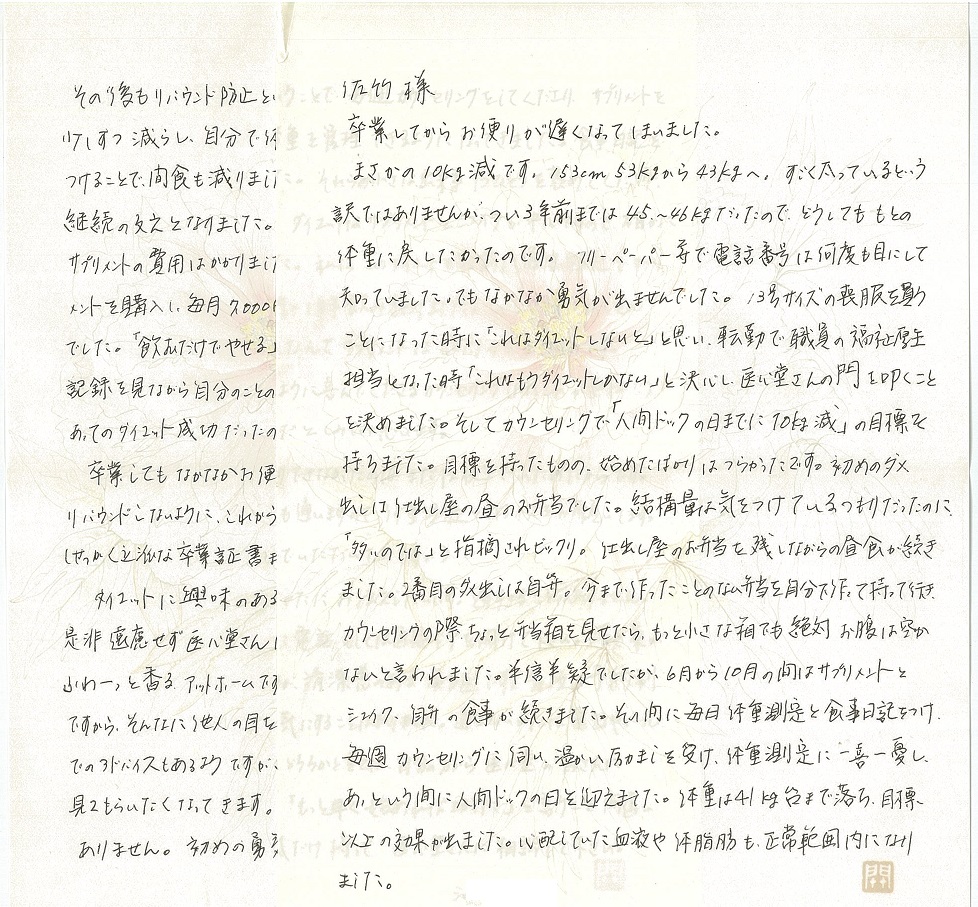 佐竹 様
卒業してからお便りが遅くなってしまいました。
まさかの10kg減です。153cm 53kgから43kgへ。すごく太っているという
訳ではありませんが、つい3年前までは45.～46kgだったので、どうしてももとの
体重に戻したかったのです。フリーペーパー等で電話番号は何度も目にして
知っていました。でもなかなか勇気が出ませんでした。13号サイズの喪服を買う
ことになった時に「これはダイエットしないと」と思い、転勤で職員の福祉厚生
担当となった時「これはもうダイエットしかない」と決心し、医心堂さんの門を叩くこと
を決めました。そしてカウンセリングで「人間ドックの日までに10kg減」の目標を
持ちました。目標を持ったものの、始めたばかりはつらかったです。初めのダメ
出しは仕出し屋の昼のお弁当でした。結構量は気をつけているつもりだったのに、
「多いのでは」と指摘されビックリ。仕出し屋のお弁当を残しながらの昼食が続き
ました。2番目のダメ出しは自弁。今まで作ったことのない弁当を自分で作って持って行き、
カウンセリングの際、ちょっと弁当箱を見せたら、もっと小さな箱でも絶対お腹は空か
ないと言われました。半信半疑でしたが、6月から10月の間はサプリメントと
シェイク、自弁の食事が続きました。その間に毎日体重測定と食事日記をつけ、
毎週カウンセリングに伺い、温かい励ましを受け、体重測定に一喜一憂し、
あっという間に人間ドックの日を迎えました。体重は41kg台まで落ち、目標
以上の効果が出ました。心配していた血液や体脂肪も、正常範囲内になり
ました。
その後もリバウンド防止と
少しずつ減らし、自分で体
つけることで、間食も減りまし
継続の支えとなりました。
サプリメントの費用はかかりまし
メントを購入し、毎月7000
でした。「飲むだけでやせる」
記録を見ながら自分のことの
あってのダイエット成功だったの
卒業してもなかなかお便
リバウンドしないように、これから
せっかく立派な卒業証書ま
ダイエットに興味のある
是非遠慮せず医心堂さん
ふわーっと香るアットホームです
ですから、そんなに他人の目を
でのアドバイスもあるようですが、
見てもらいたくなってきます。
ありません。初めの勇気
開